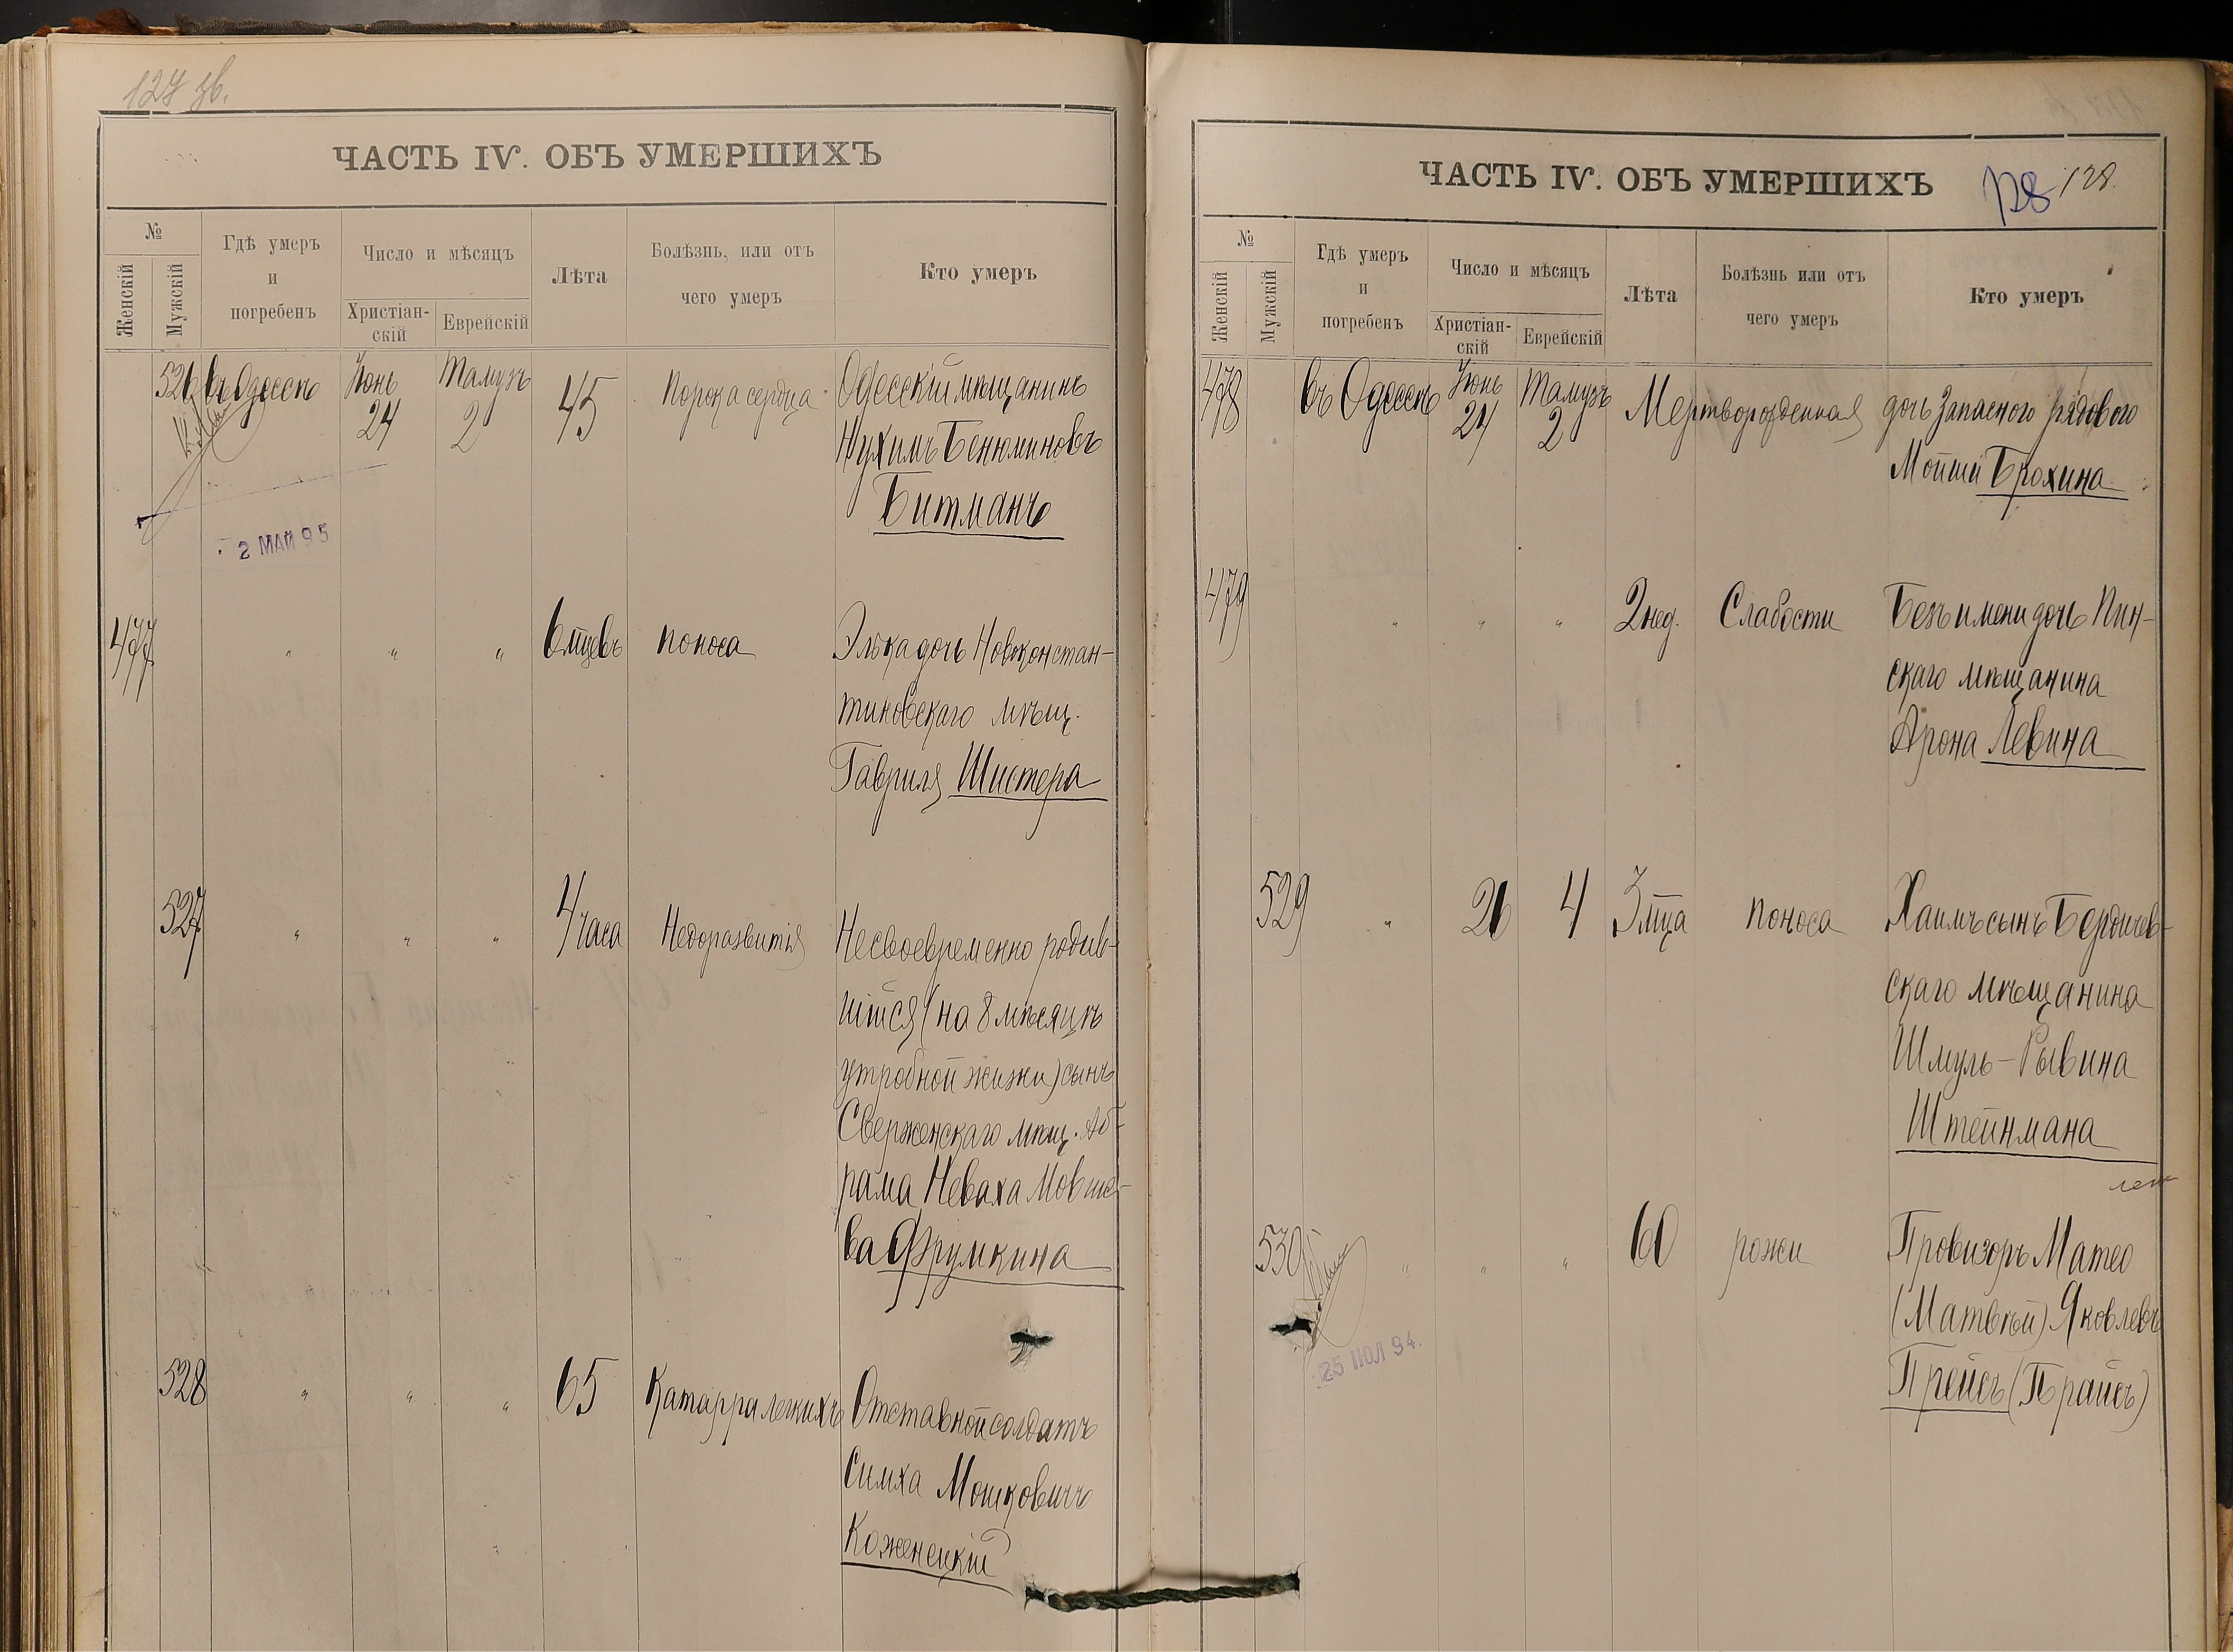 127 зв.
ЧАСТЬ IV. ОБЪ УМЕРШИХЪ
№
Женскій
Мужскій
Гдѣ умеръ
и
погребенъ
Число и мѣсяцъ
Христіан-
скій
Еврейскій
Лѣта
Болѣзнь, или отъ
чего умеръ
Кто умеръ
526 въ Одессѣ Іюнь 24 Тамузъ 2 45 Порока сердца Одесскій мѣщанинъ
Нухимъ Бенюминовъ
Битманъ
2 МАЙ 95
477 " " " 6 мцевъ поноса Элька дочь Новоконстан-
тиновскаго мѣщ.
Гавриля Шистера
527 " " " 4 часа Недоразвитія Несвоевременно родив-
шійся (на 8 мѣсяцѣ
утробной жизни) сынъ
Сверженскаго мѣщ. Аб-
рама Неваха Мовше-
ва Фрумкина
528 " " " 65 Катарра легкихъ Отставной солдатъ
Симха Мошковичъ
Коженецкій
ЧАСТЬ IV. ОБЪ УМЕРШИХЪ
128 128.
№
Женскій
Мужскій
Гдѣ умеръ
и
погребенъ
Число и мѣсяцъ
Христіан-
скій
Еврейскій
Лѣта
Болѣзнь или отъ
чего умеръ
Кто умеръ
478 въ Одессѣ Іюнь 24 Тамузъ 2 Мертворожденная дочь запасного рядового
Мойши Брохина
479 " " " 2 нед. Слабости Безъ имени дочь Пин-
скаго мѣщанина
Арона Левина
529 " 26 4 3 мца поноса Хаимъ сынъ Бердичев-
скаго мѣщанина
Шмуль-Рывина
Штейнмана
530 " " " 60 рожи Провизоръ Матео
(Матвѣй) Яковлевъ
Прейсъ (Прайсъ)
25 ІЮЛ 94.